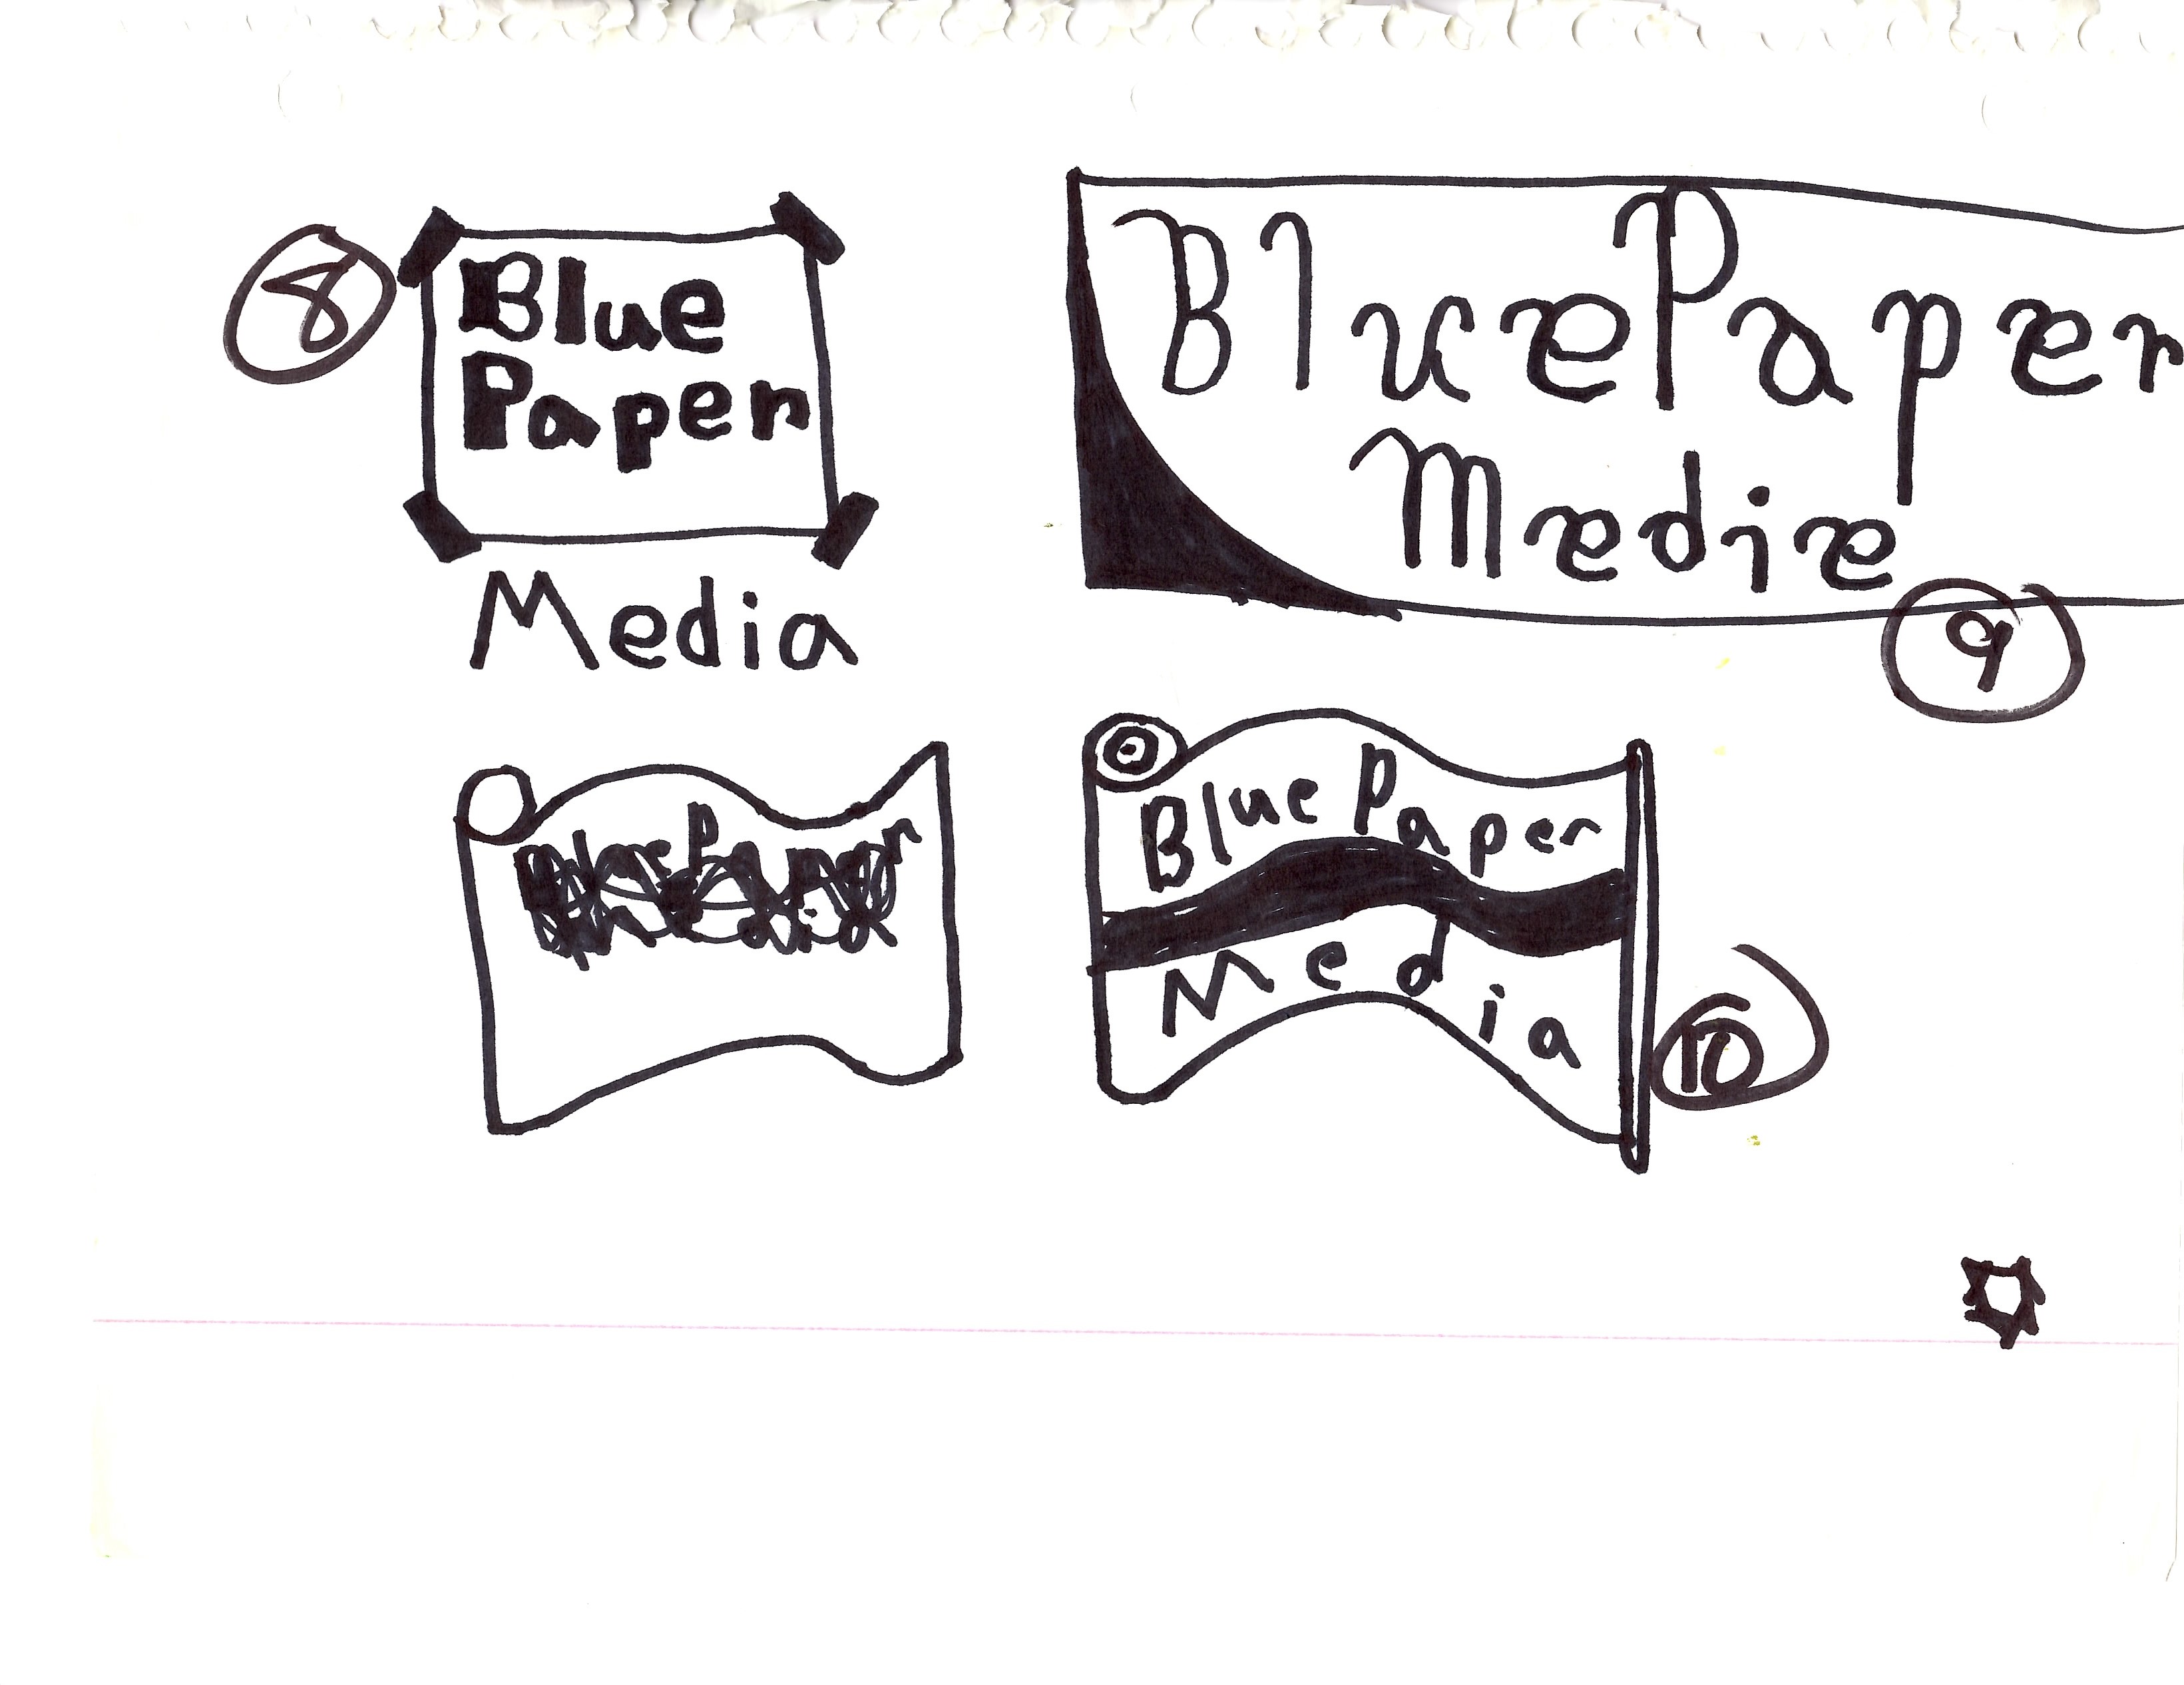 8
Blue
Paper
Media
BluePaper
Medie
9
BluePaper
Media
10